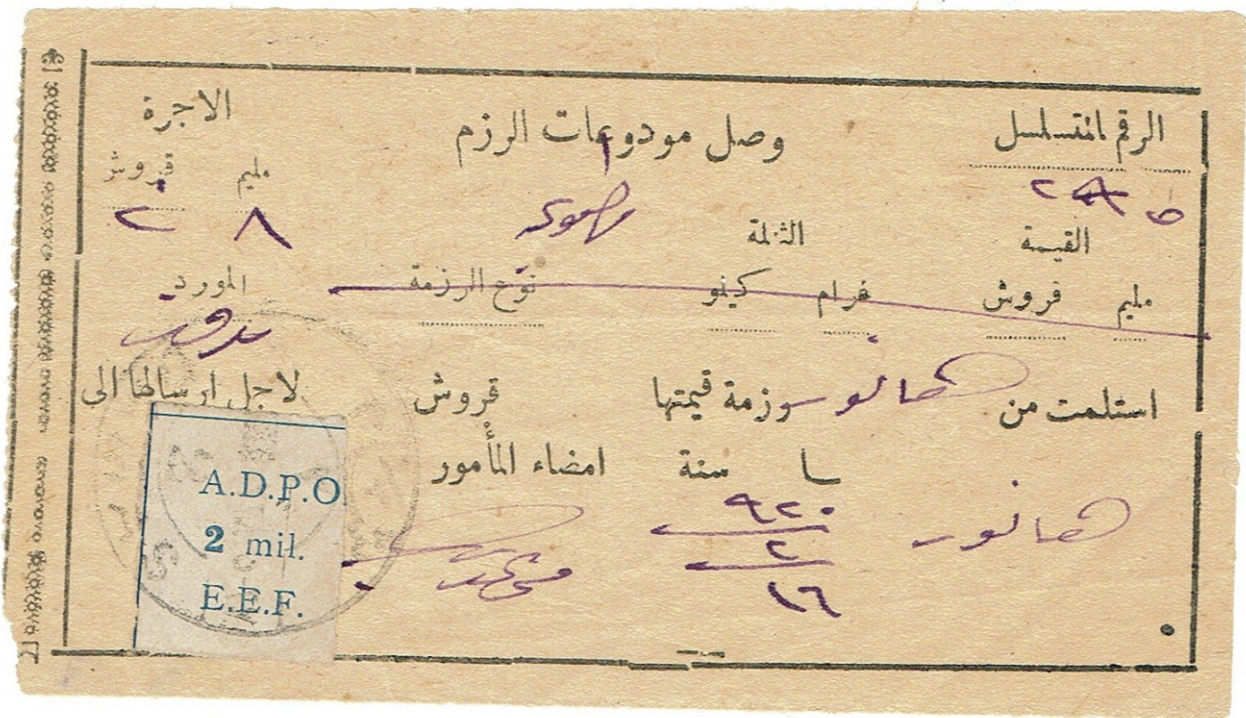 الرقم المتسلسل وصل مودوعات الرزم الاجرة
مليم قروش
٨ ٢
القيمة الثقلة
مليم قروش غرام كيلو نوع الرزمة المورد
استلمت من هانور رزمة قيمتها قروش لاجل ارسالها الى
با سنة امضاء المأمور
هانور ٩٢٠
٢
١٦
A.D.P.O.
2 mil.
E.E.F.